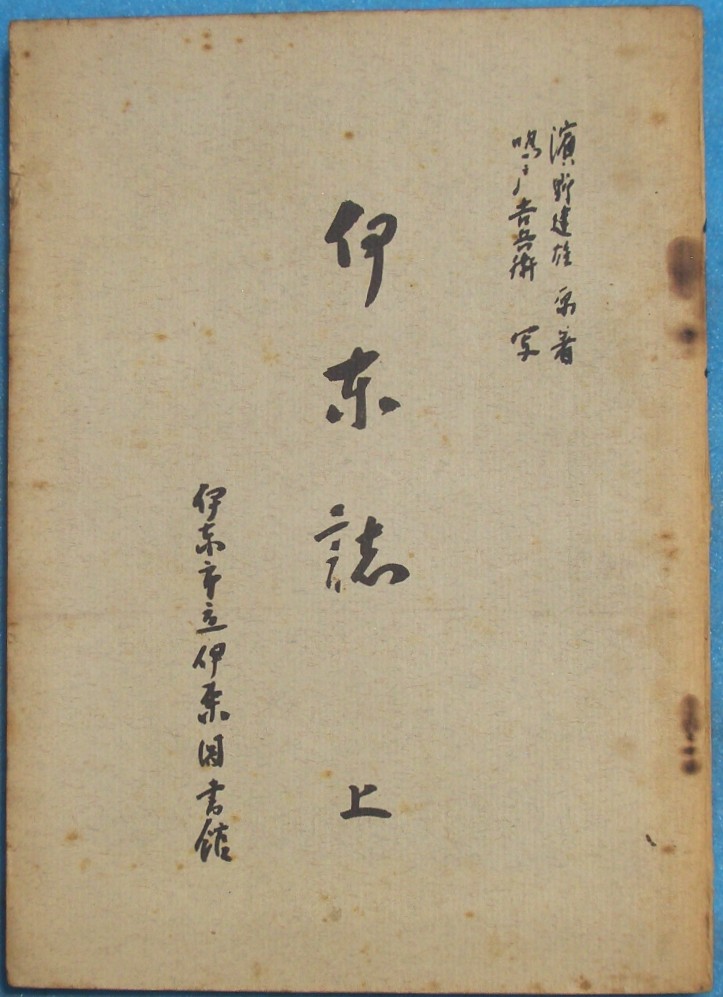 濱野建雄 原著
鳴戸吉兵衛 写
伊东誌 上
伊东市立伊东図書館